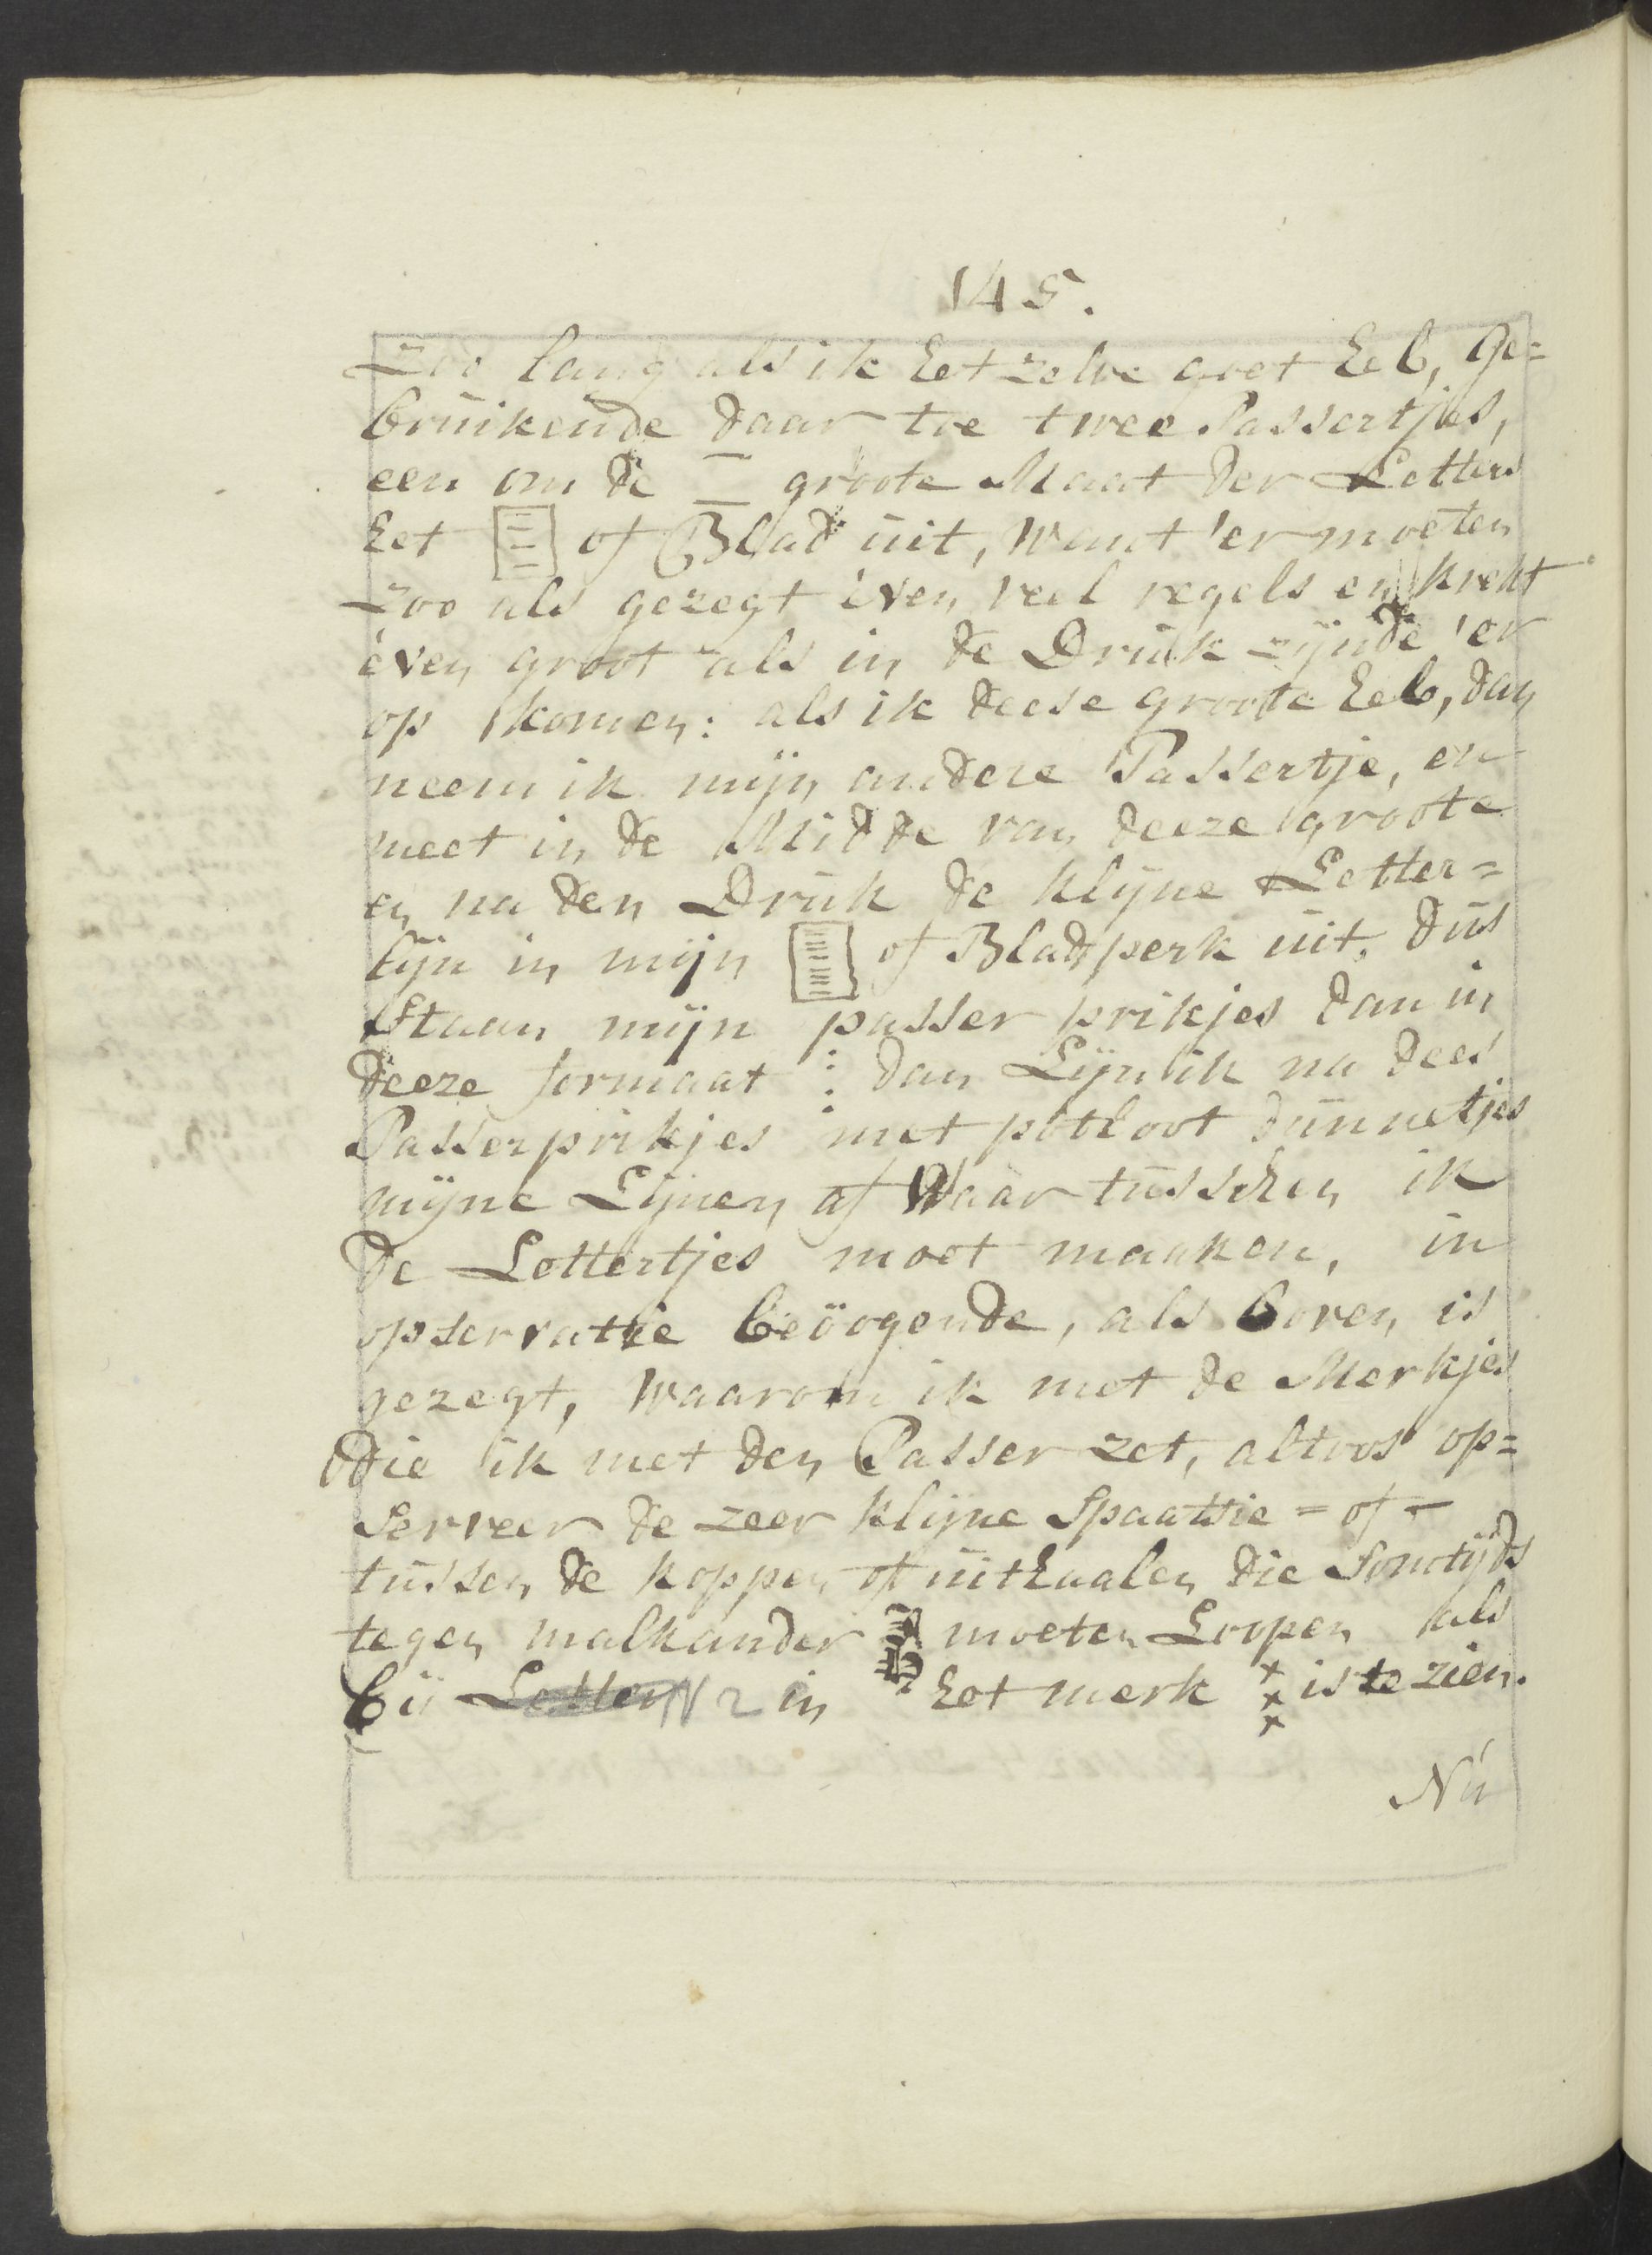 145.
zoo lang als ik het zelve goet heb, Ge=
bruikende daar toe twee Passertjes,
een om de groote Maat der Letters
het of Blad uit, want 'er moeten
zoo als gezegt éven veel regels en krekt
éven groot als in de Druk zijnde 'er
op komen: als ik deese groote heb, dan
neem ik mijn andere Passertje, en
meet in de Midde van deeze groote
en na den Druk de klijne Letter=
lijn in mijn of Bladperk uit, dus
Staan mijn passer prikjes dan in
deeze formaat : dan Lijn ik na dees
Passerprikjes met potloot dunnetjes
mijne Lijnen af Waar tusschen ik
De Lettertjes moet maaken, in
opservatie beöogende, als boven is
gezegt, waarom ik met de Merkjes
die ik met den Passer zet, altoos op=
Serveer de zeer klijne Spaatsie = of -
tussen de koppen of uithaalen die Somtijds
tegen malkander moeten Loopen als
bij Letter N 2 in het merk xxx is te zien.
Nu